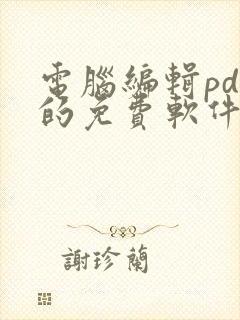 電腦編輯pd
的免費軟件
謝珍蘭